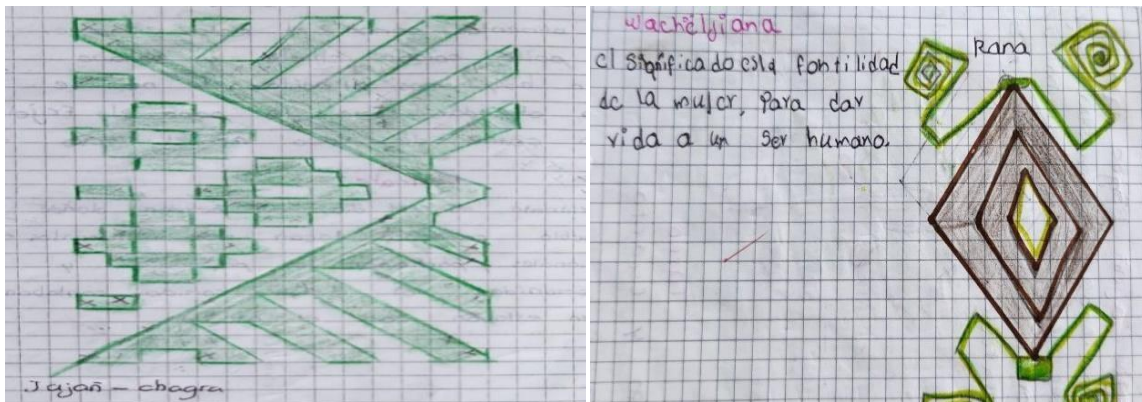 Jajañ - chagra
Wachëljiana
cl significado esla fontilidad
de la mujer, para dar
vida a un ser humano.
Rana